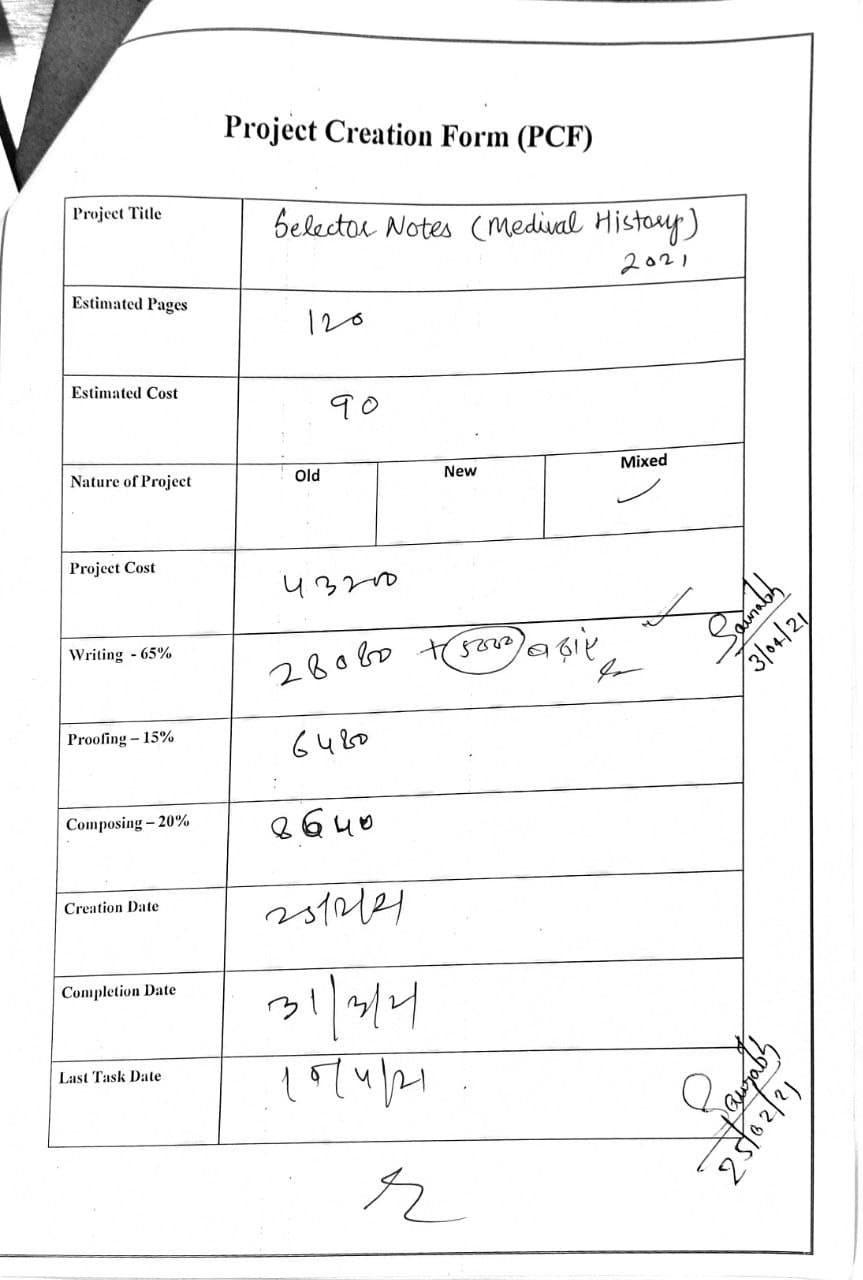 Project Creation Form (PCF)
Project Title
Selector Notes (Medival History)
2021
Estimated Pages
120
Estimated Cost
90
Nature of Project
Old
New
Mixed
Project Cost
43200
Writing - 65%
28080 +
Saurabh
3/04/21
Proofing – 15%
6480
Composing – 20%
8640
Creation Date
25/2/21
Completion Date
31/3/21
Last Task Date
15/4/21
Saurabh
25/02/21